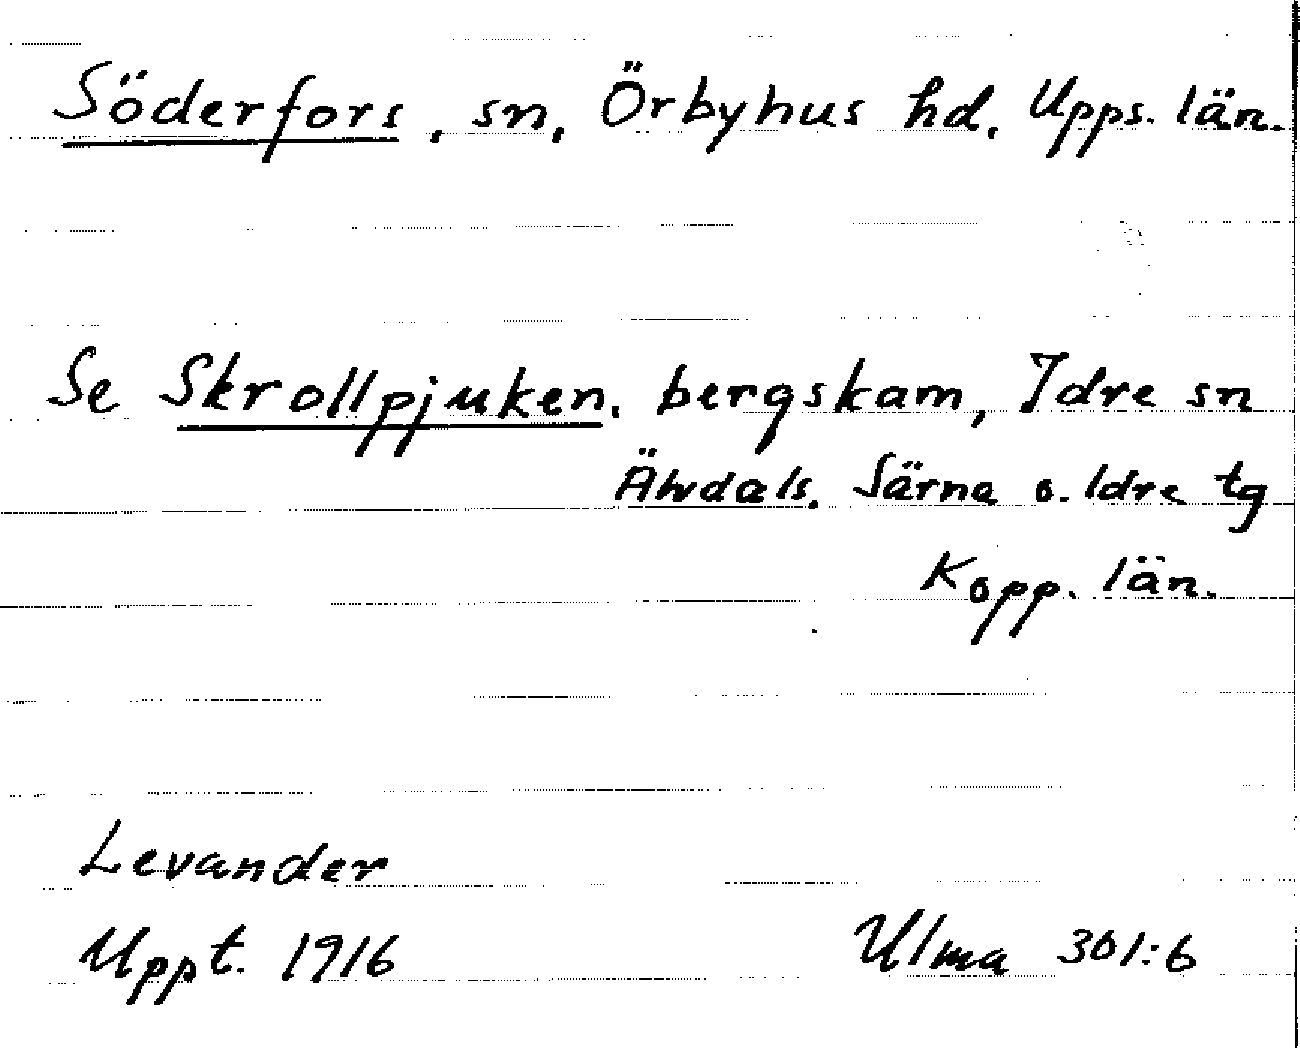 Söderfors, sn, Örbyhus hd, Upps. län.
Se Skrollpjuken, bergskam, Idre sn
Älvdals, Särna o. Idre tg
Kopp. län.
Levander
Uppt. 1916 Ulma 301:6